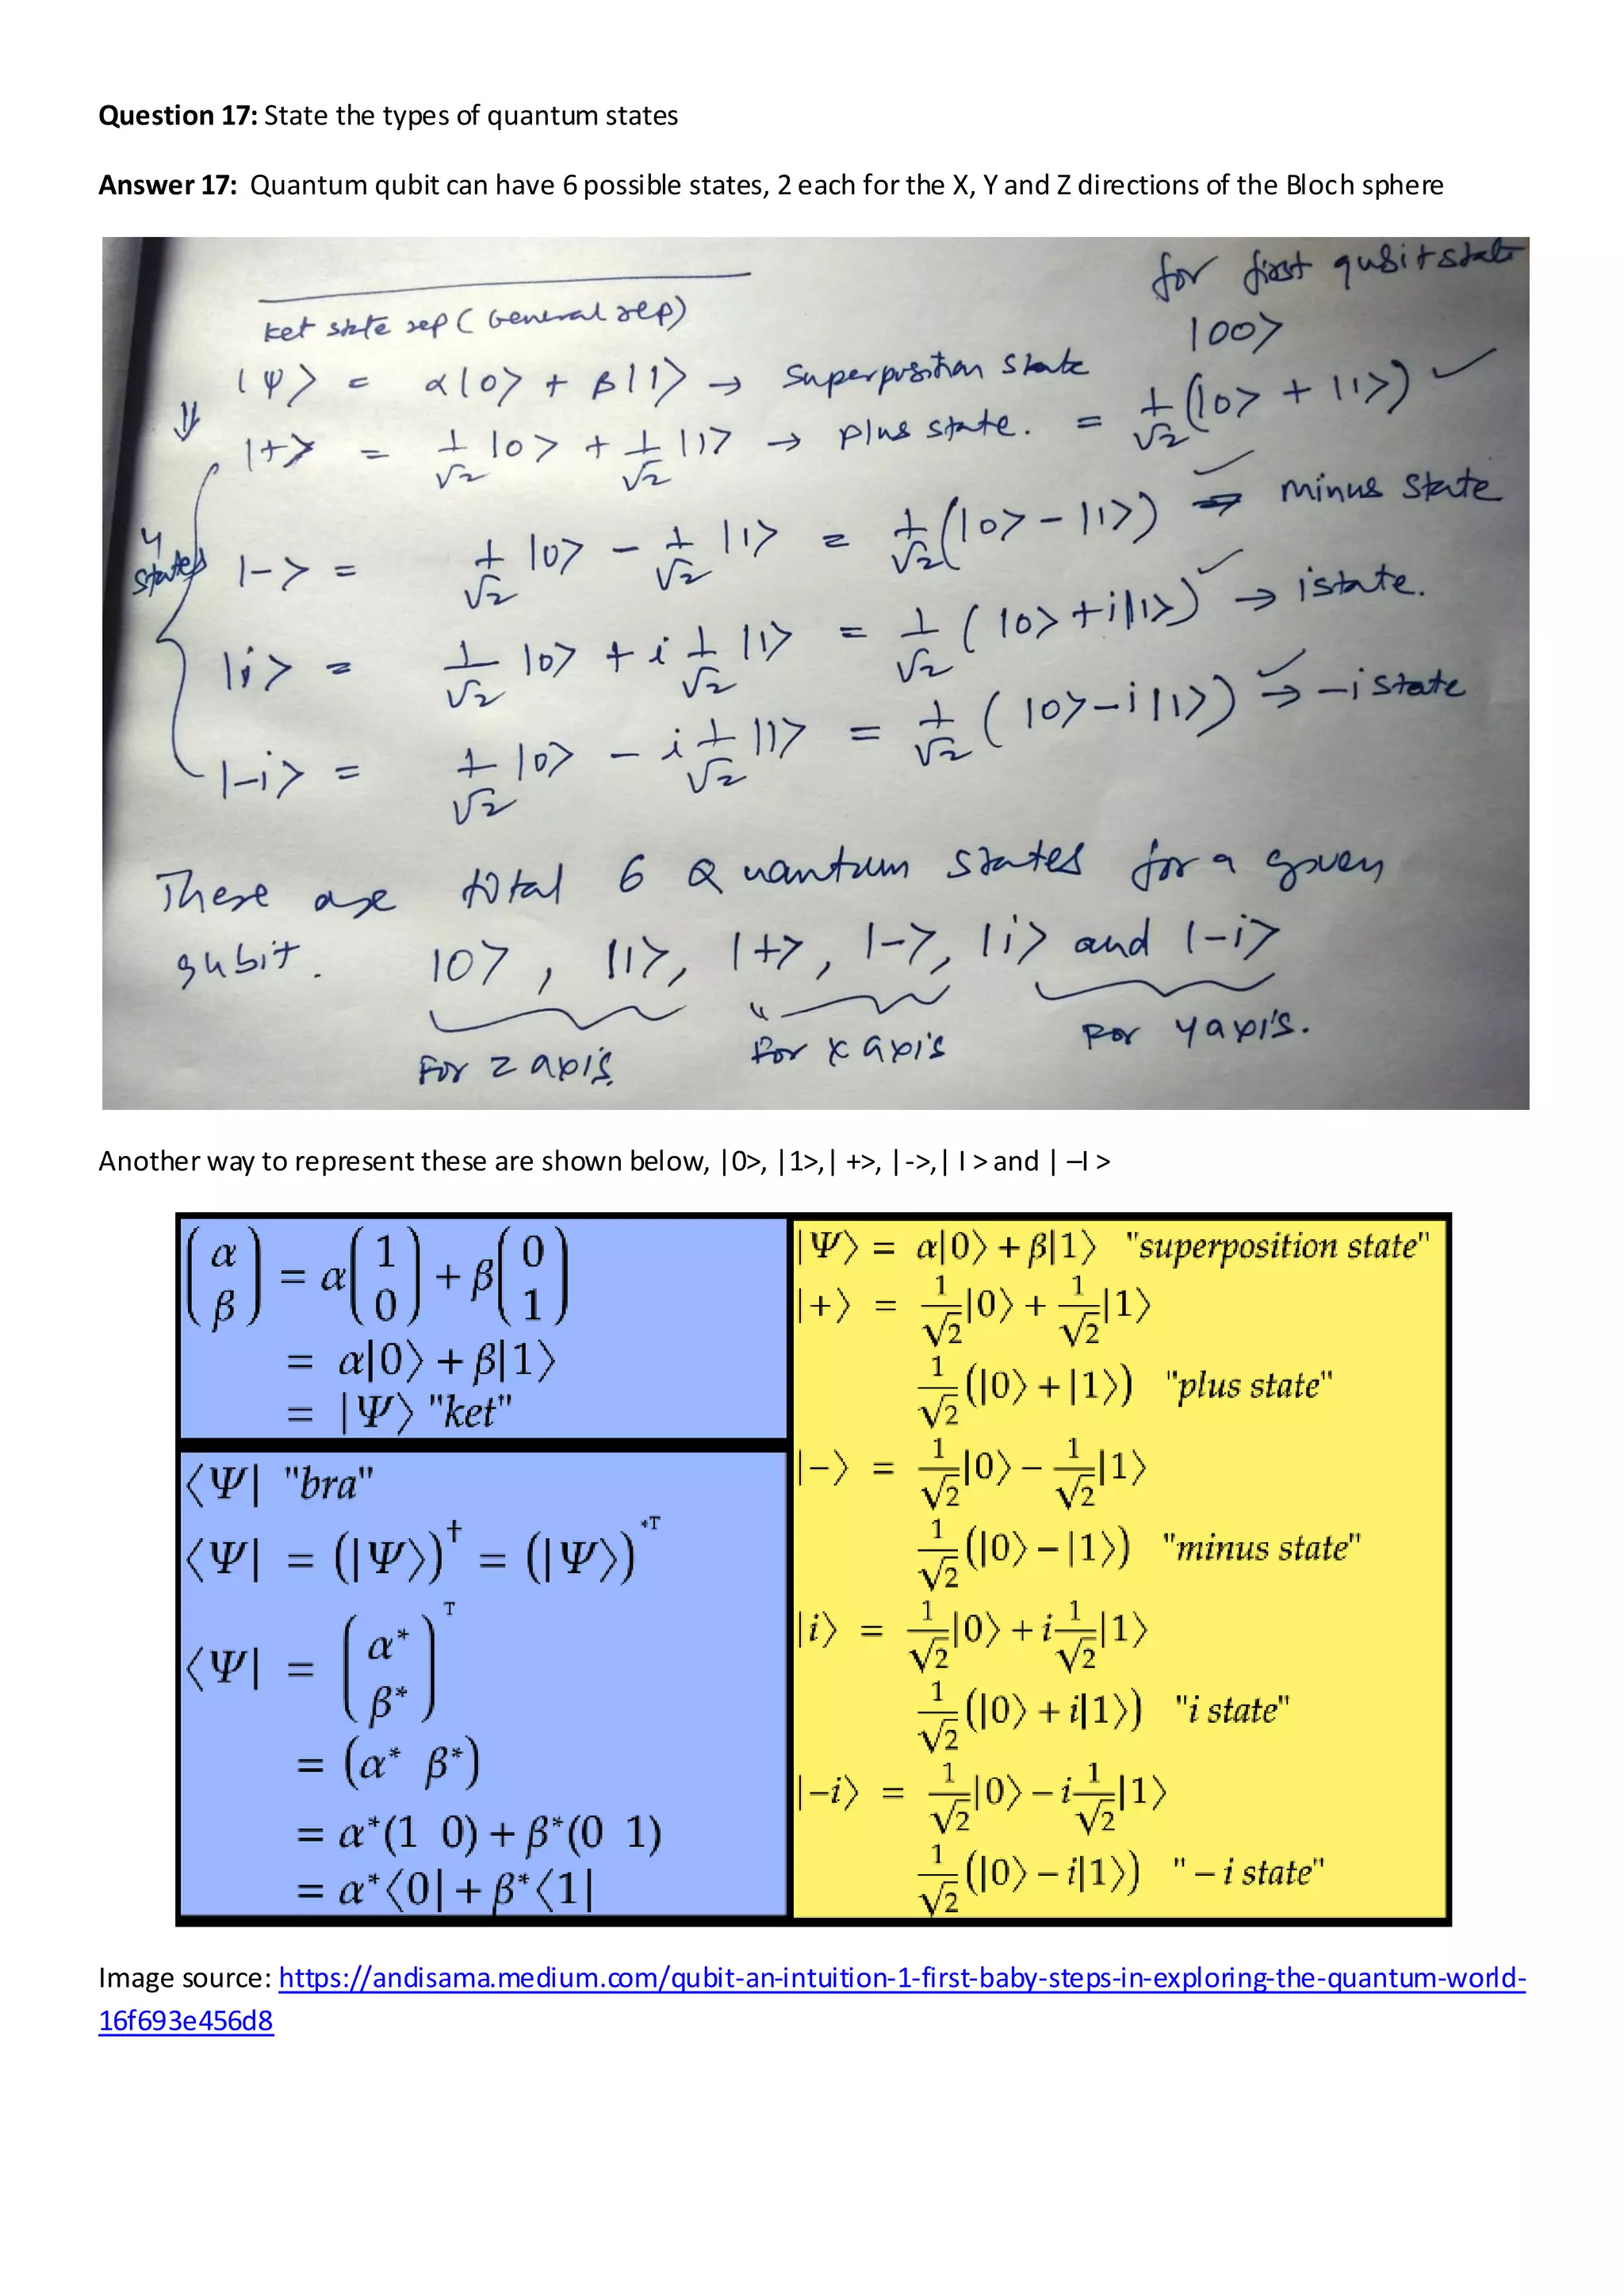 Question 17: State the types of quantum states
Answer 17: Quantum qubit can have 6 possible states, 2 each for the X, Y and Z directions of the Bloch sphere
for first qubit state
ket state rep ( General rep)
|00>
|ψ> = α|0> + β|1> → Superposition state
⇓
|+> = 1/√2 |0> + 1/√2 |1> → plus state. = 1/√2 (|0> + |1>) ✓
4 states
|-> = 1/√2 |0> - 1/√2 |1> = 1/√2 (|0> - |1>) ✓ → minus state
|i> = 1/√2 |0> + i 1/√2 |1> = 1/√2 ( |0> + i|1>) ✓ → i state.
|-i> = 1/√2 |0> - i 1/√2 |1> = 1/√2 ( |0> - i|1>) ✓ → -i state
There are total 6 Quantum states for a given
qubit. |0>, |1>, |+>, |->, |i> and |-i>
For z axis For x axis For y axis.
Another way to represent these are shown below, |0>, |1>,| +>, |->,| I > and | –I >
(α β) = α(1 0) + β(0 1)
= α|0⟩ + β|1⟩
= |Ψ⟩ "ket"
⟨Ψ| "bra"
⟨Ψ| = (|Ψ⟩)† = (|Ψ⟩)*T
⟨Ψ| = (α* β*)T
= (α* β*)
= α*(1 0) + β*(0 1)
= α*⟨0| + β*⟨1|
|Ψ⟩ = α|0⟩ + β|1⟩ "superposition state"
|+⟩ = 1/√2|0⟩ + 1/√2|1⟩
1/√2(|0⟩ + |1⟩) "plus state"
|−⟩ = 1/√2|0⟩ − 1/√2|1⟩
1/√2(|0⟩ − |1⟩) "minus state"
|i⟩ = 1/√2|0⟩ + i1/√2|1⟩
1/√2(|0⟩ + i|1⟩) "i state"
|−i⟩ = 1/√2|0⟩ − i1/√2|1⟩
1/√2(|0⟩ − i|1⟩) " − i state"
Image source: https://andisama.medium.com/qubit-an-intuition-1-first-baby-steps-in-exploring-the-quantum-world-
16f693e456d8